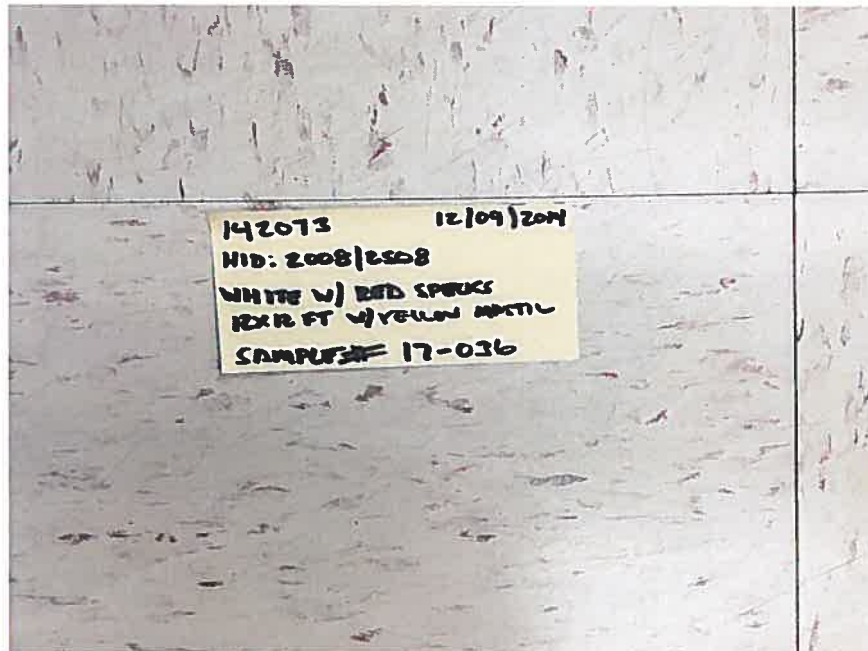 142073 12/09/2014
HID: 2008/2508
WHITE W/ RED SPECKS
12X12 FT W/YELLOW MASTIC
SAMPLE# 17-036